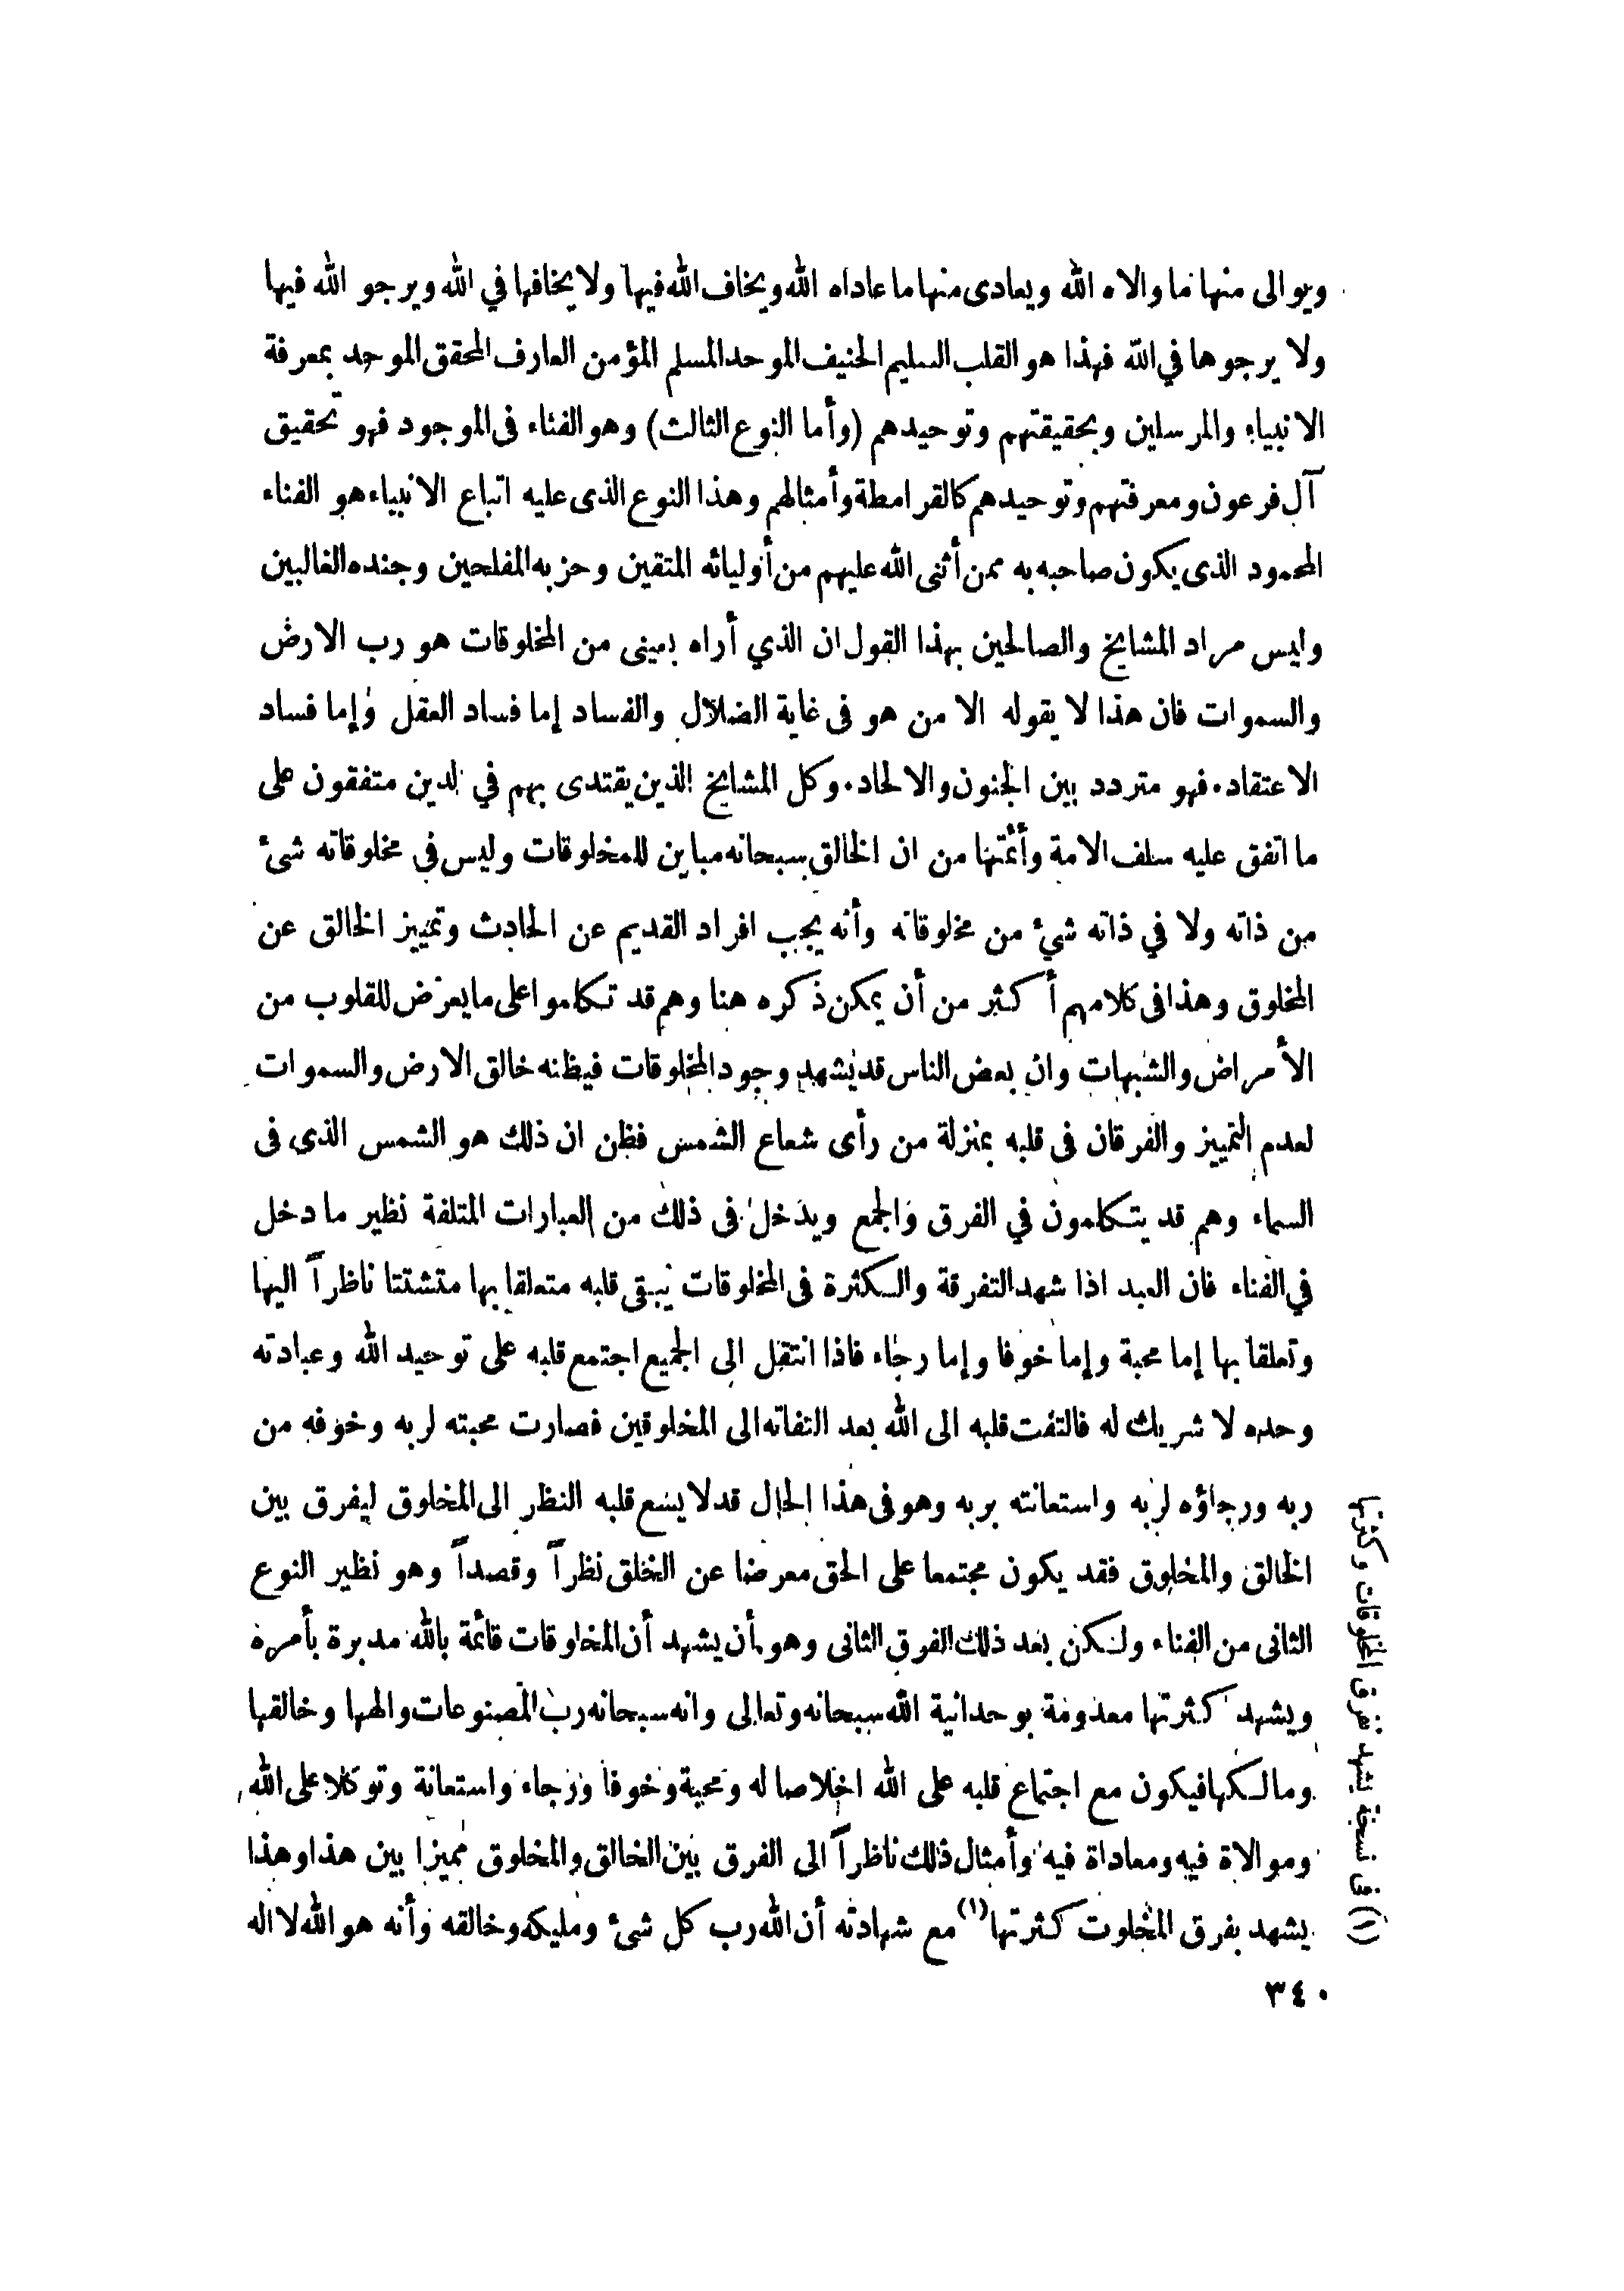 ويوالى منها ما والاه الله ويعادى منها ما عاداه الله ويخاف الله فيها ولا يخافها في الله ويرجو الله فيها
ولا يرجوها في الله فهذا هو القلب السليم الحنيف الموحد المسلم المؤمن العارف المحقق الموحد بمعرفة
الانبياء والمرسلين وبحقيقتهم وتوحيدهم (وأما النوع الثالث) وهو الفناء فى الموجود فهو تحقيق
آل فرعون ومعرفتهم وتوحيدهم كالقرامطة وأمثالهم وهذا النوع الذى عليه اتباع الانبياء هو الفناء
المحمود الذى يكون صاحبه به ممن أثنى الله عليهم من أوليائه المتقين وحزبه المفلحين وجنده الغالبين
وليس مراد المشايخ والصالحين بهذا القول ان الذي أراه بعينى من المخلوقات هو رب الارض
والسموات فان هذا لا يقوله الا من هو فى غاية الضلال والفساد إما فساد العقل وإما فساد
الاعتقاد. فهو متردد بين الجنون والالحاد. وكل المشايخ الذين يقتدى بهم في الدين متفقون على
ما اتفق عليه سلف الامة وأئمتها من ان الخالق سبحانه مباين للمخلوقات وليس في مخلوقاته شىء
من ذاته ولا في ذاته شيء من مخلوقاته وأنه يجب افراد القديم عن الحادث وتمييز الخالق عن
المخلوق وهذا فى كلامهم أكثر من أن يمكن ذكره هنا وهم قد تكلموا على ما يعرض للقلوب من
الأمراض والشبهات وان بعض الناس قد يشهد وجود المخلوقات فيظنه خالق الارض والسموات
لعدم التمييز والفرقان فى قلبه بمنزلة من رأى شعاع الشمس فظن ان ذلك هو الشمس الذى فى
السماء وهم قد يتكلمون في الفرق والجمع ويدخل فى ذلك من العبارات المتلفة نظير ما دخل
في الفناء فان العبد اذا شهد التفرقة والكثرة فى المخلوقات يبقى قلبه متعلقا بها متشتتا ناظراً اليها
وتعلقا بها إما محبة وإما خوفا وإما رجاء فاذا انتقل الى الجميع اجتمع قلبه على توحيد الله وعبادته
وحده لا شريك له فالتفت قلبه الى الله بعد التفاته الى المخلوقين فصارت محبته لربه وخوفه من
ربه ورجاؤه لربه واستعانته بربه وهو فى هذا الحال قد لا يسع قلبه النظر الى المخلوق ليفرق بين
الخالق والمخلوق فقد يكون مجتمعا على الحق معرضا عن الخلق نظراً وقصداً وهو نظير النوع
الثانى من الفناء ولكن بعد ذلك الفرق الثانى وهو أن يشهد أن المخلوقات قائمة بالله مدبرة بأمره
ويشهد كثرتها معدومة بوحدانية الله سبحانه وتعالى وانه سبحانه رب المصنوعات والهها وخالقها
ومالكها فيكون مع اجتماع قلبه على الله اخلاصا له ومحبة وخوفا ورجاء واستعانة وتوكلا على الله
وموالاة فيه ومعاداة فيه وأمثال ذلك ناظراً الى الفرق بين الخالق والمخلوق مميزا بين هذا وهذا
يشهد بفرق المخلوت كثرتها (١) مع شهادته أن الله رب كل شىء ومليكه وخالقه وأنه هو الله لا اله
(١) فى نسخة يشهد تفرق المخلوقات وكثرتها
٣٤٠